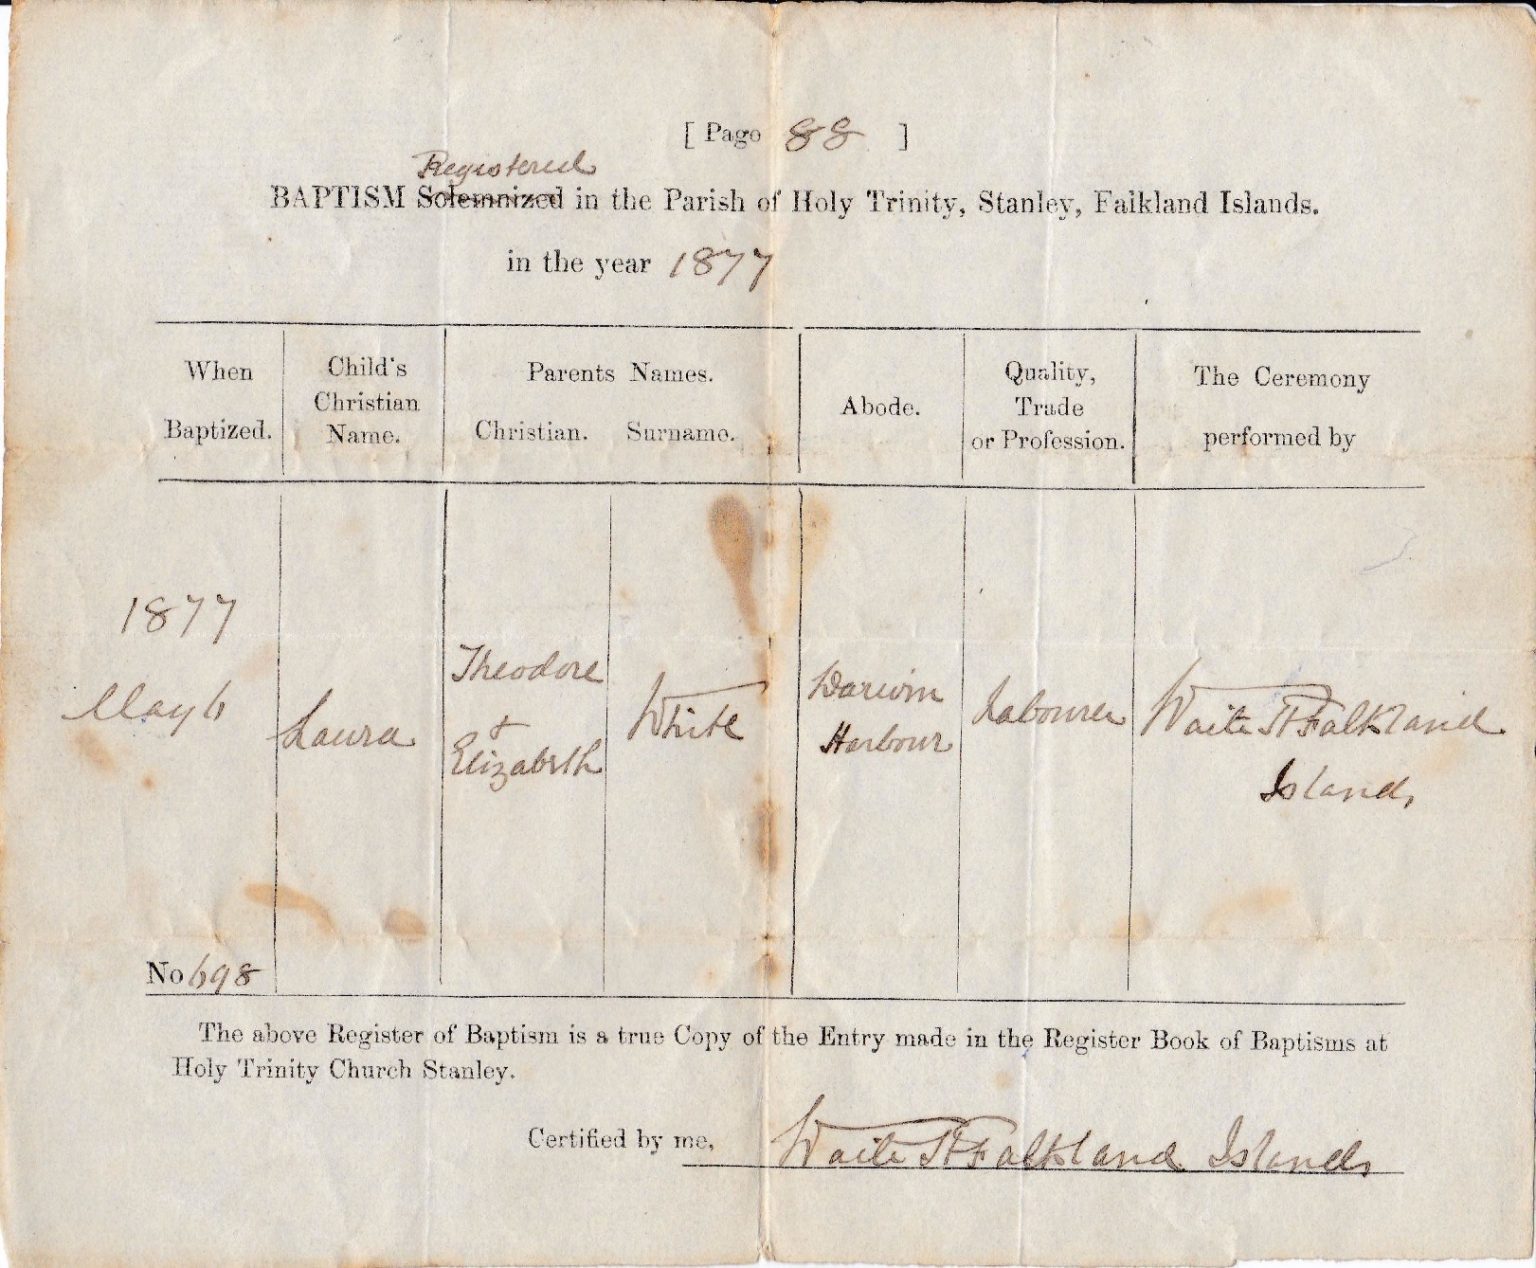 [ Page 88 ]
Registered
BAPTISM Solemnized in the Parish of Holy Trinity, Stanley, Falkland Islands.
in the year 1877
When
Baptized.
Child's
Christian
Name.
Parents Names.
Christian. Surname.
Abode.
Quality,
Trade
or Profession.
The Ceremony
performed by
1877
May 6
Laura
Theodore
&
Elizabeth
White
Darwin
Harbour
Labourer
Waite H Falkland
Islands
No 698
The above Register of Baptism is a true Copy of the Entry made in the Register Book of Baptisms at
Holy Trinity Church Stanley.
Certified by me, Waite H Falkland Islands